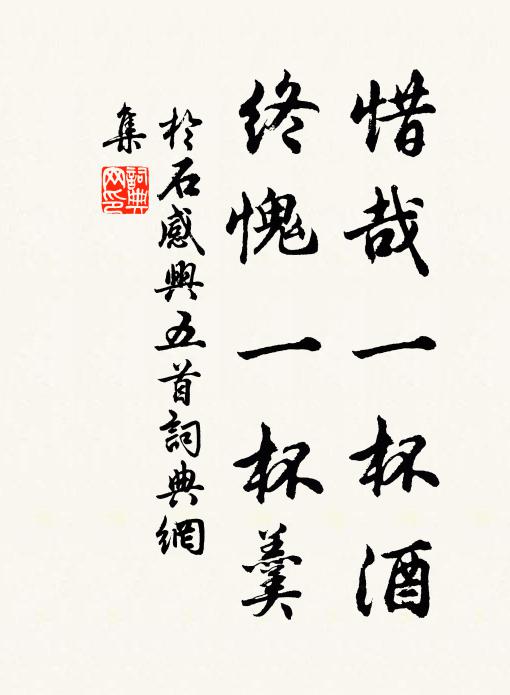 惜哉一杯酒
終愧一杯羹
於石感興五首詞典網
集
詞典
网印